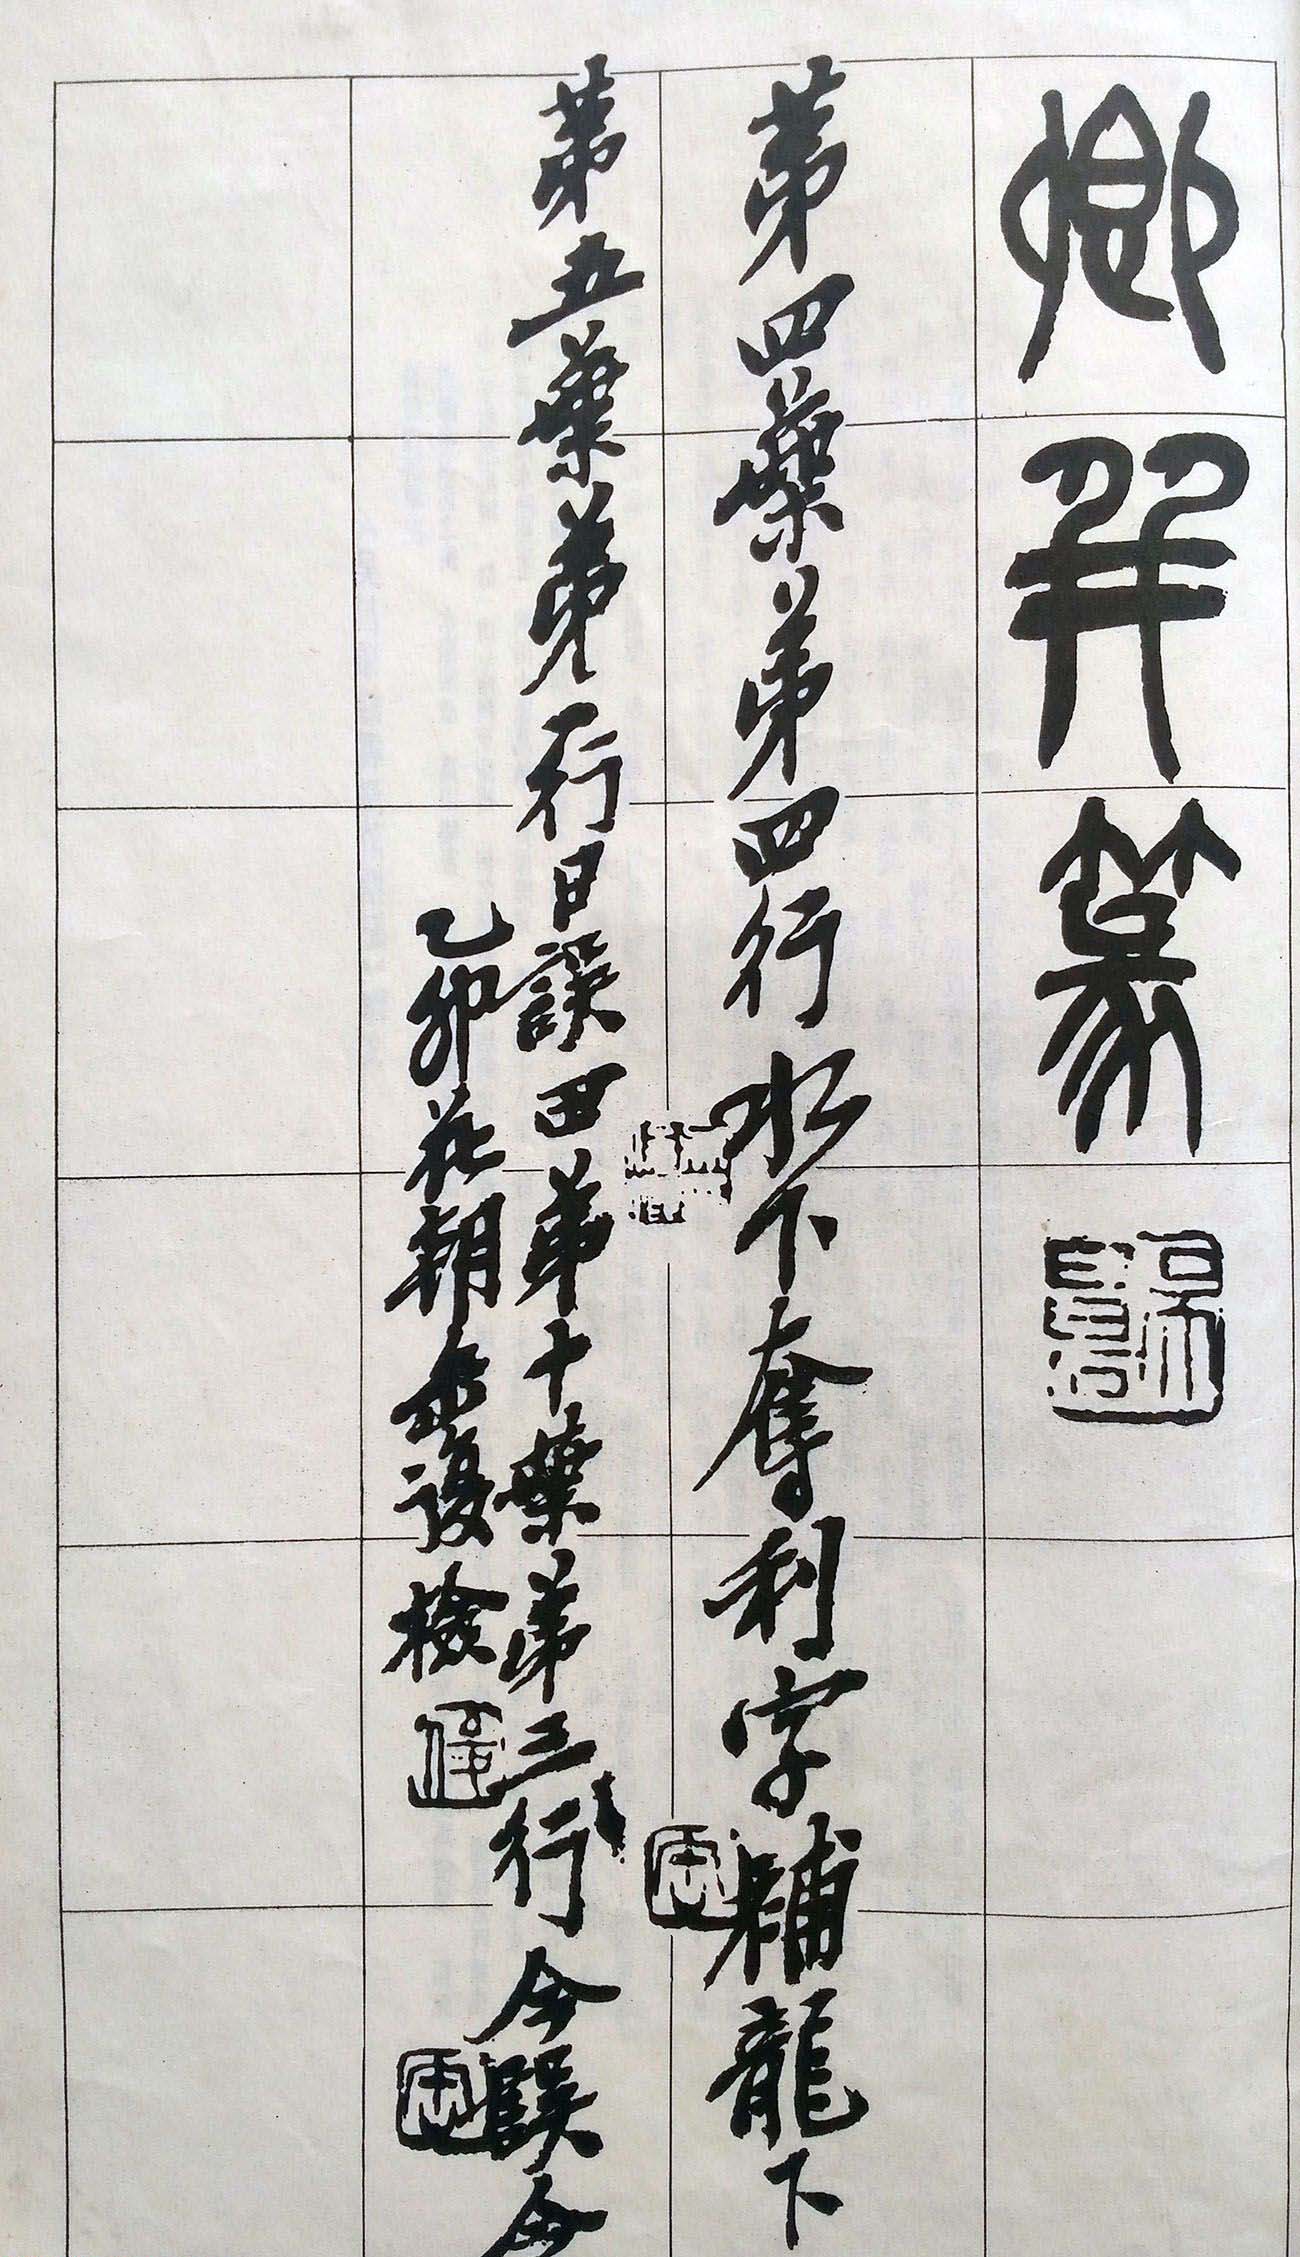 卿并篆
苐四葉苐四行水下奪利字輔龍下
苐五葉苐一行日誤田苐十葉苐三行今誤
乙卯花朝缶檢